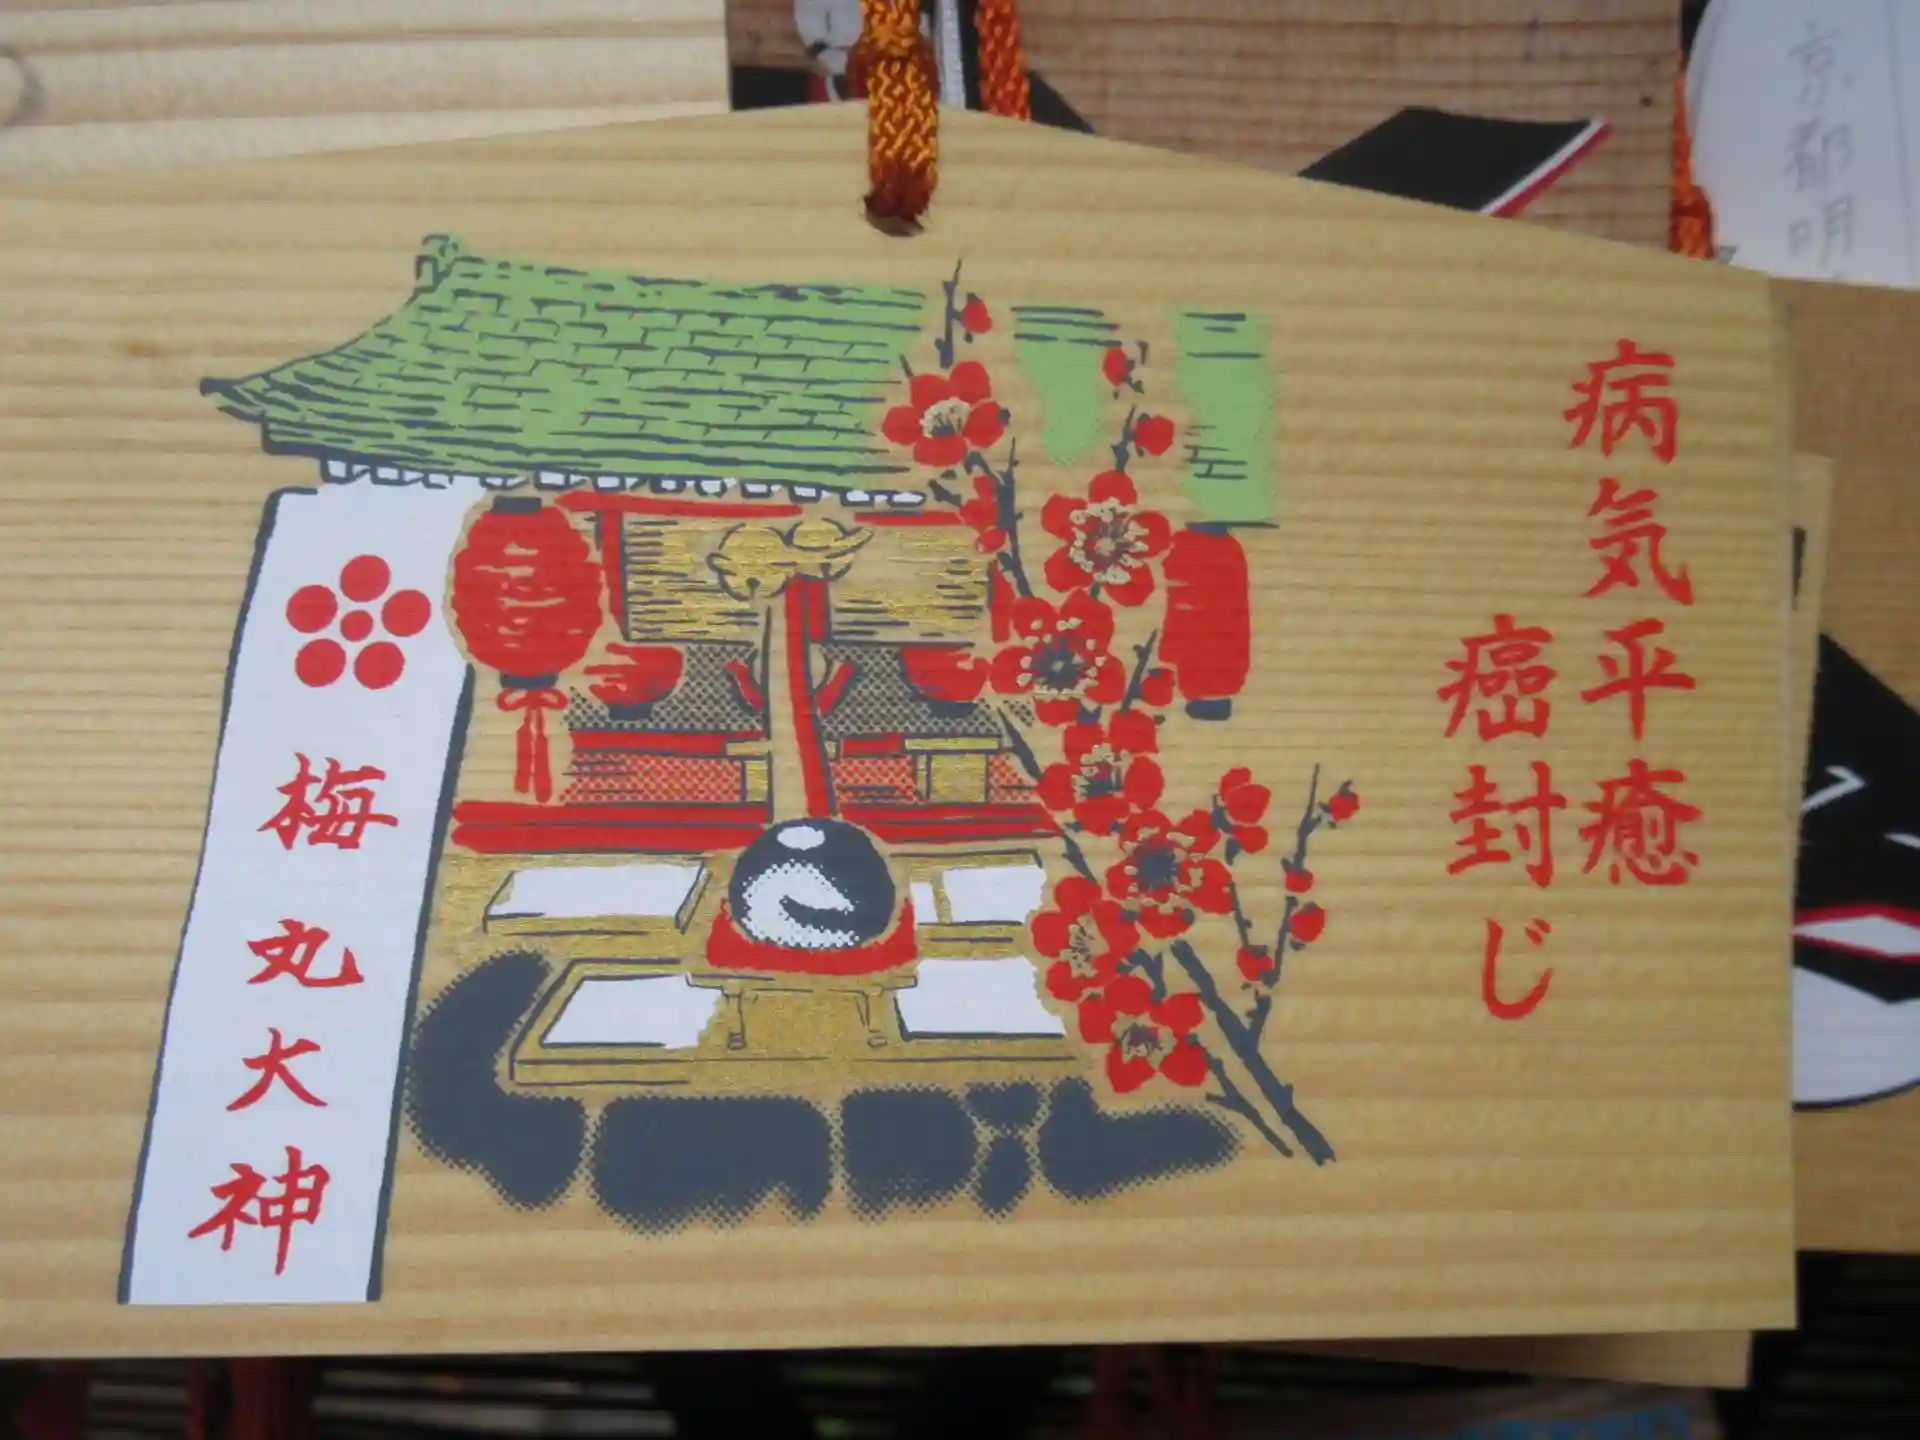 病気平癒
癌封じ
梅丸大神
京都